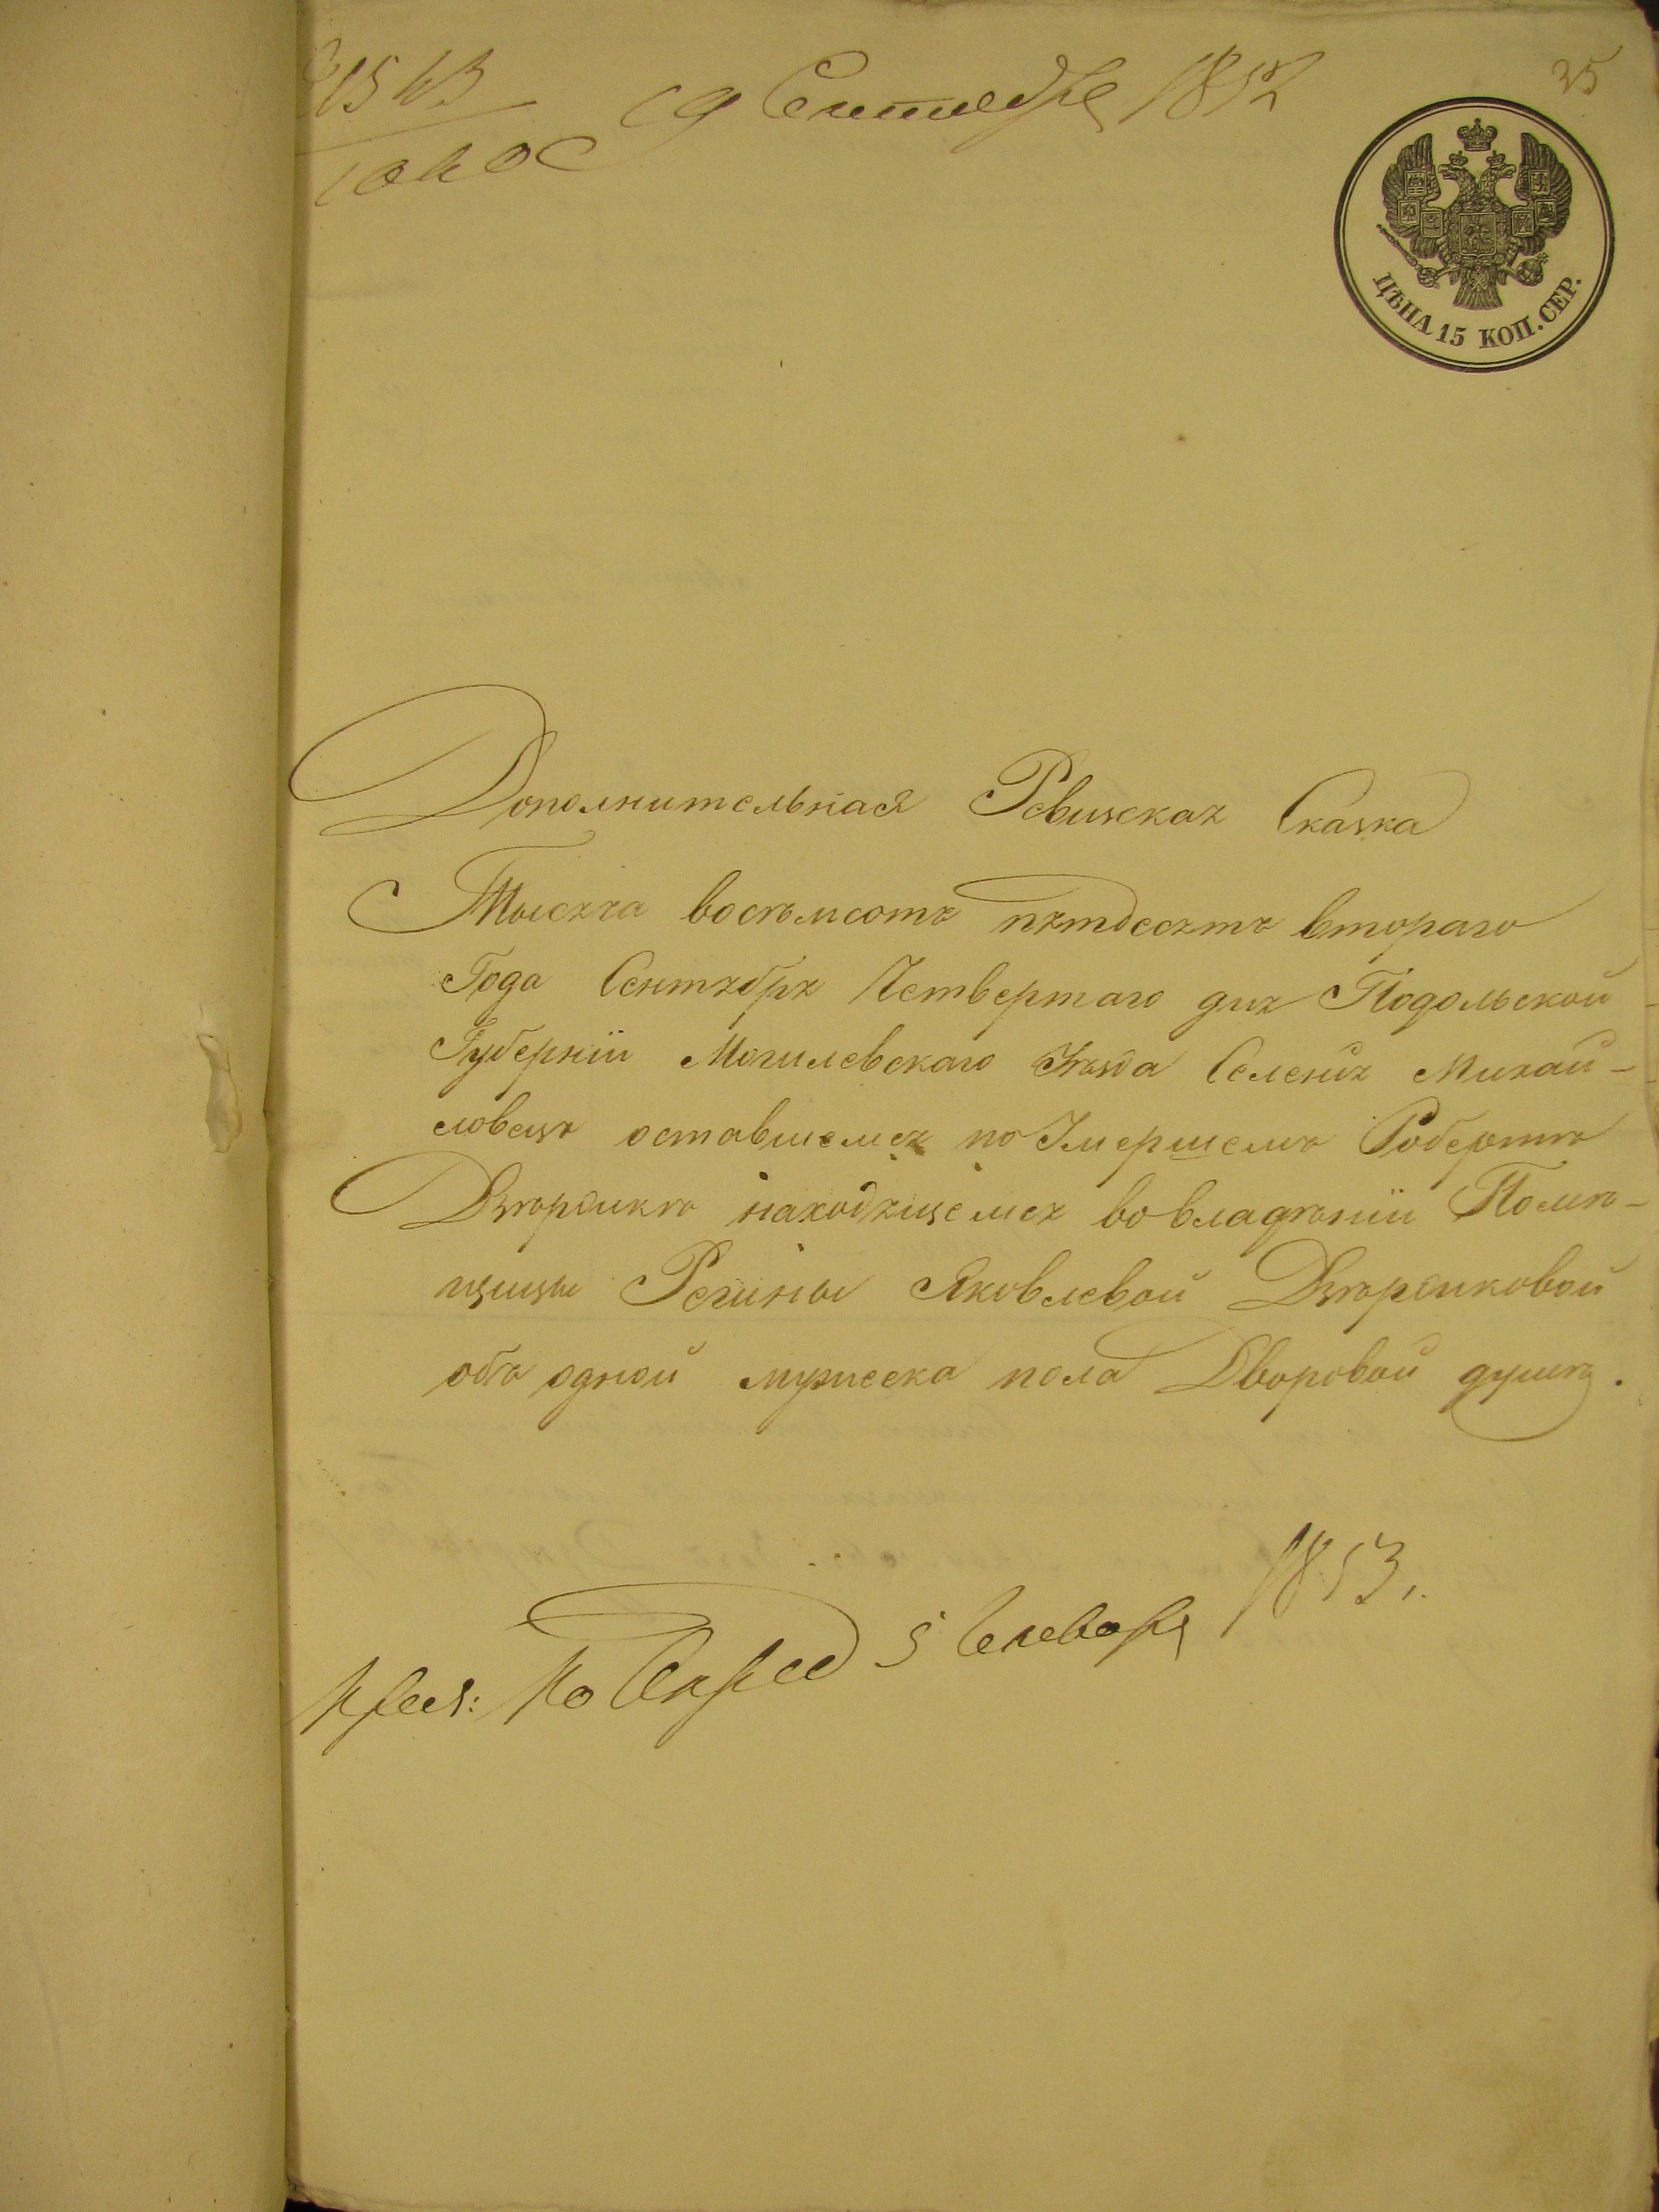 35
1543
19 Сентября 1852
ЦѢНА 15 КОП. СЕР.
Дополнительная Ревизская Сказка
Тысяча восѣмсотъ пятдесятъ втораго
Года Сентября Четвертаго дня Подольской
Губерніи Могилевскаго Уѣзда Селенія Михай-
ловецъ оставшемся по Умершемъ Робертѣ
Дзѣрдикѣ находящемся во владѣніи Помѣ-
щицы Регины Яковлевой Дзѣрдиковой
объ одной мужеска пола Дворовой душѣ.
5 Генваря 1853.